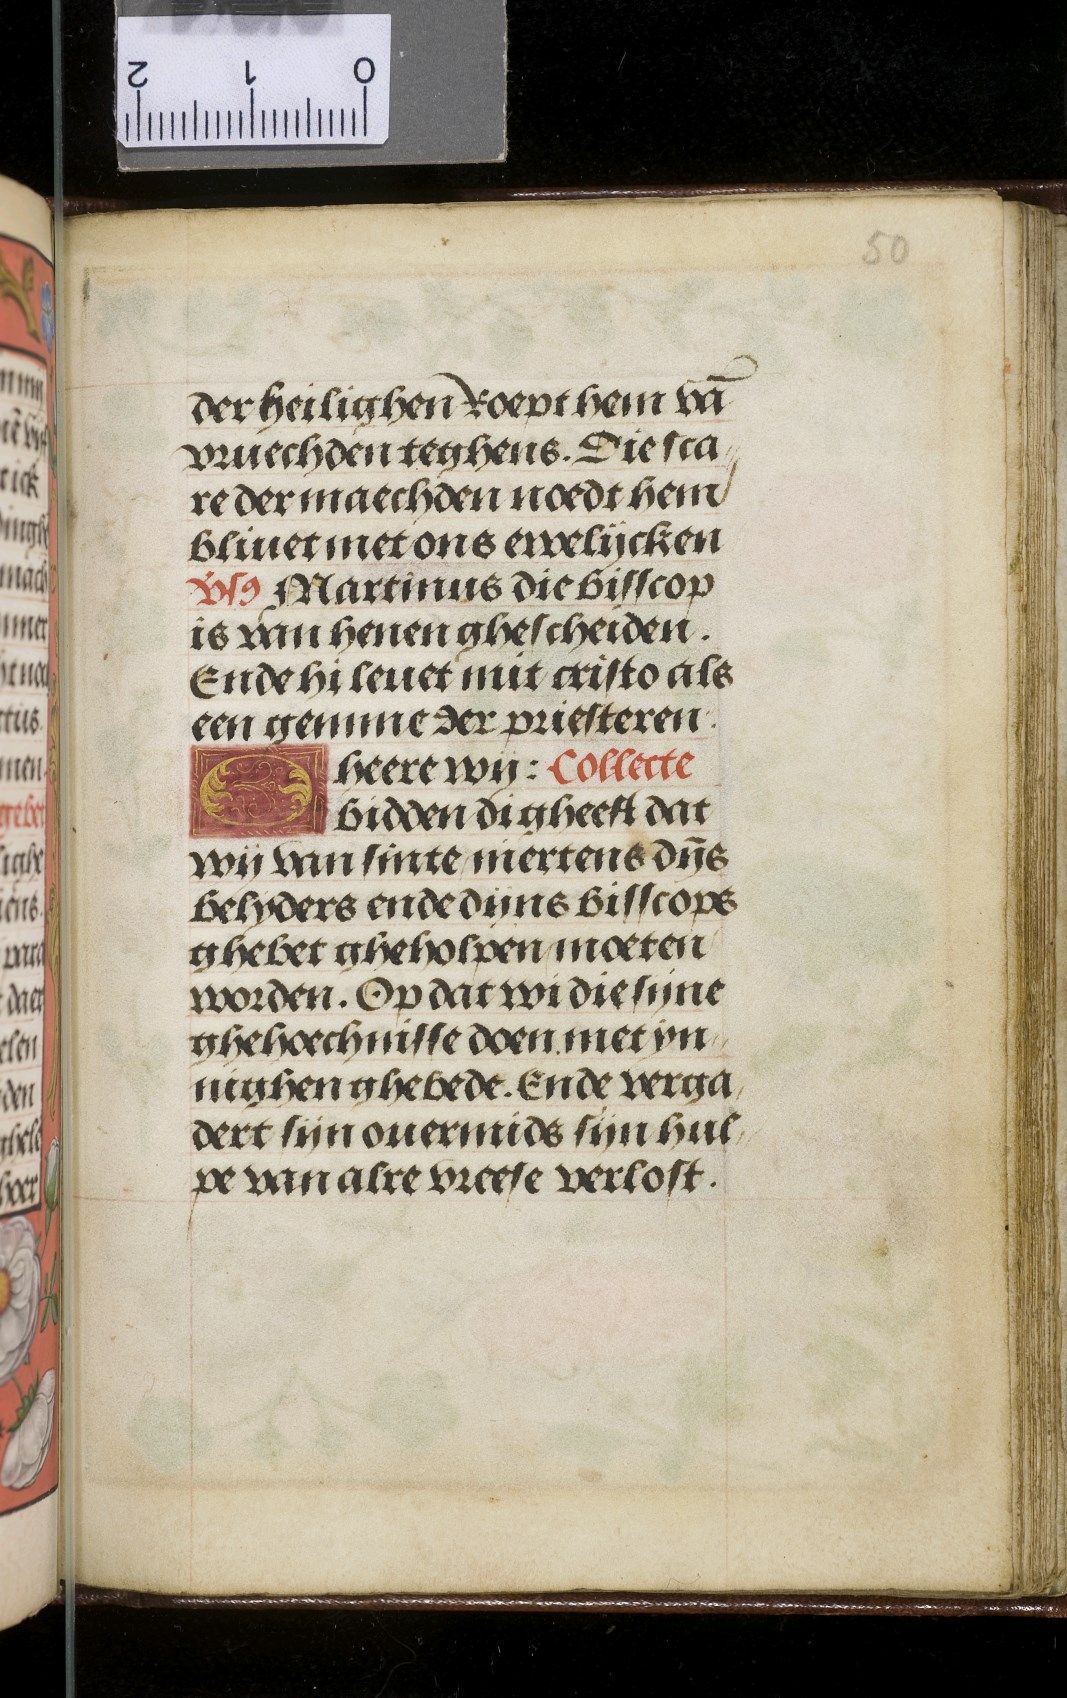 2 1 0
50
der heilighen Roept hem vā
vruechden teghens. Die sca
re der maechden noedt hem
bliuet met ons ewelijcken
v̄s9 Martinus die bisscop
is van henen ghescheiden.
Ende hi leuet mit cristo als
een gemme der priesteren.
O heere wij: Collecte
bidden di gheeft dat
wij van sinte mertens dijs̄
belyders ende dijns bisscops
ghebet gheholpen moeten
worden. Op dat wi die sijne
ghehoechnisse doen met yn
nighen ghebede. Ende verga
dert sijn ouermids sijn hul
pe van alre vreese verlost.